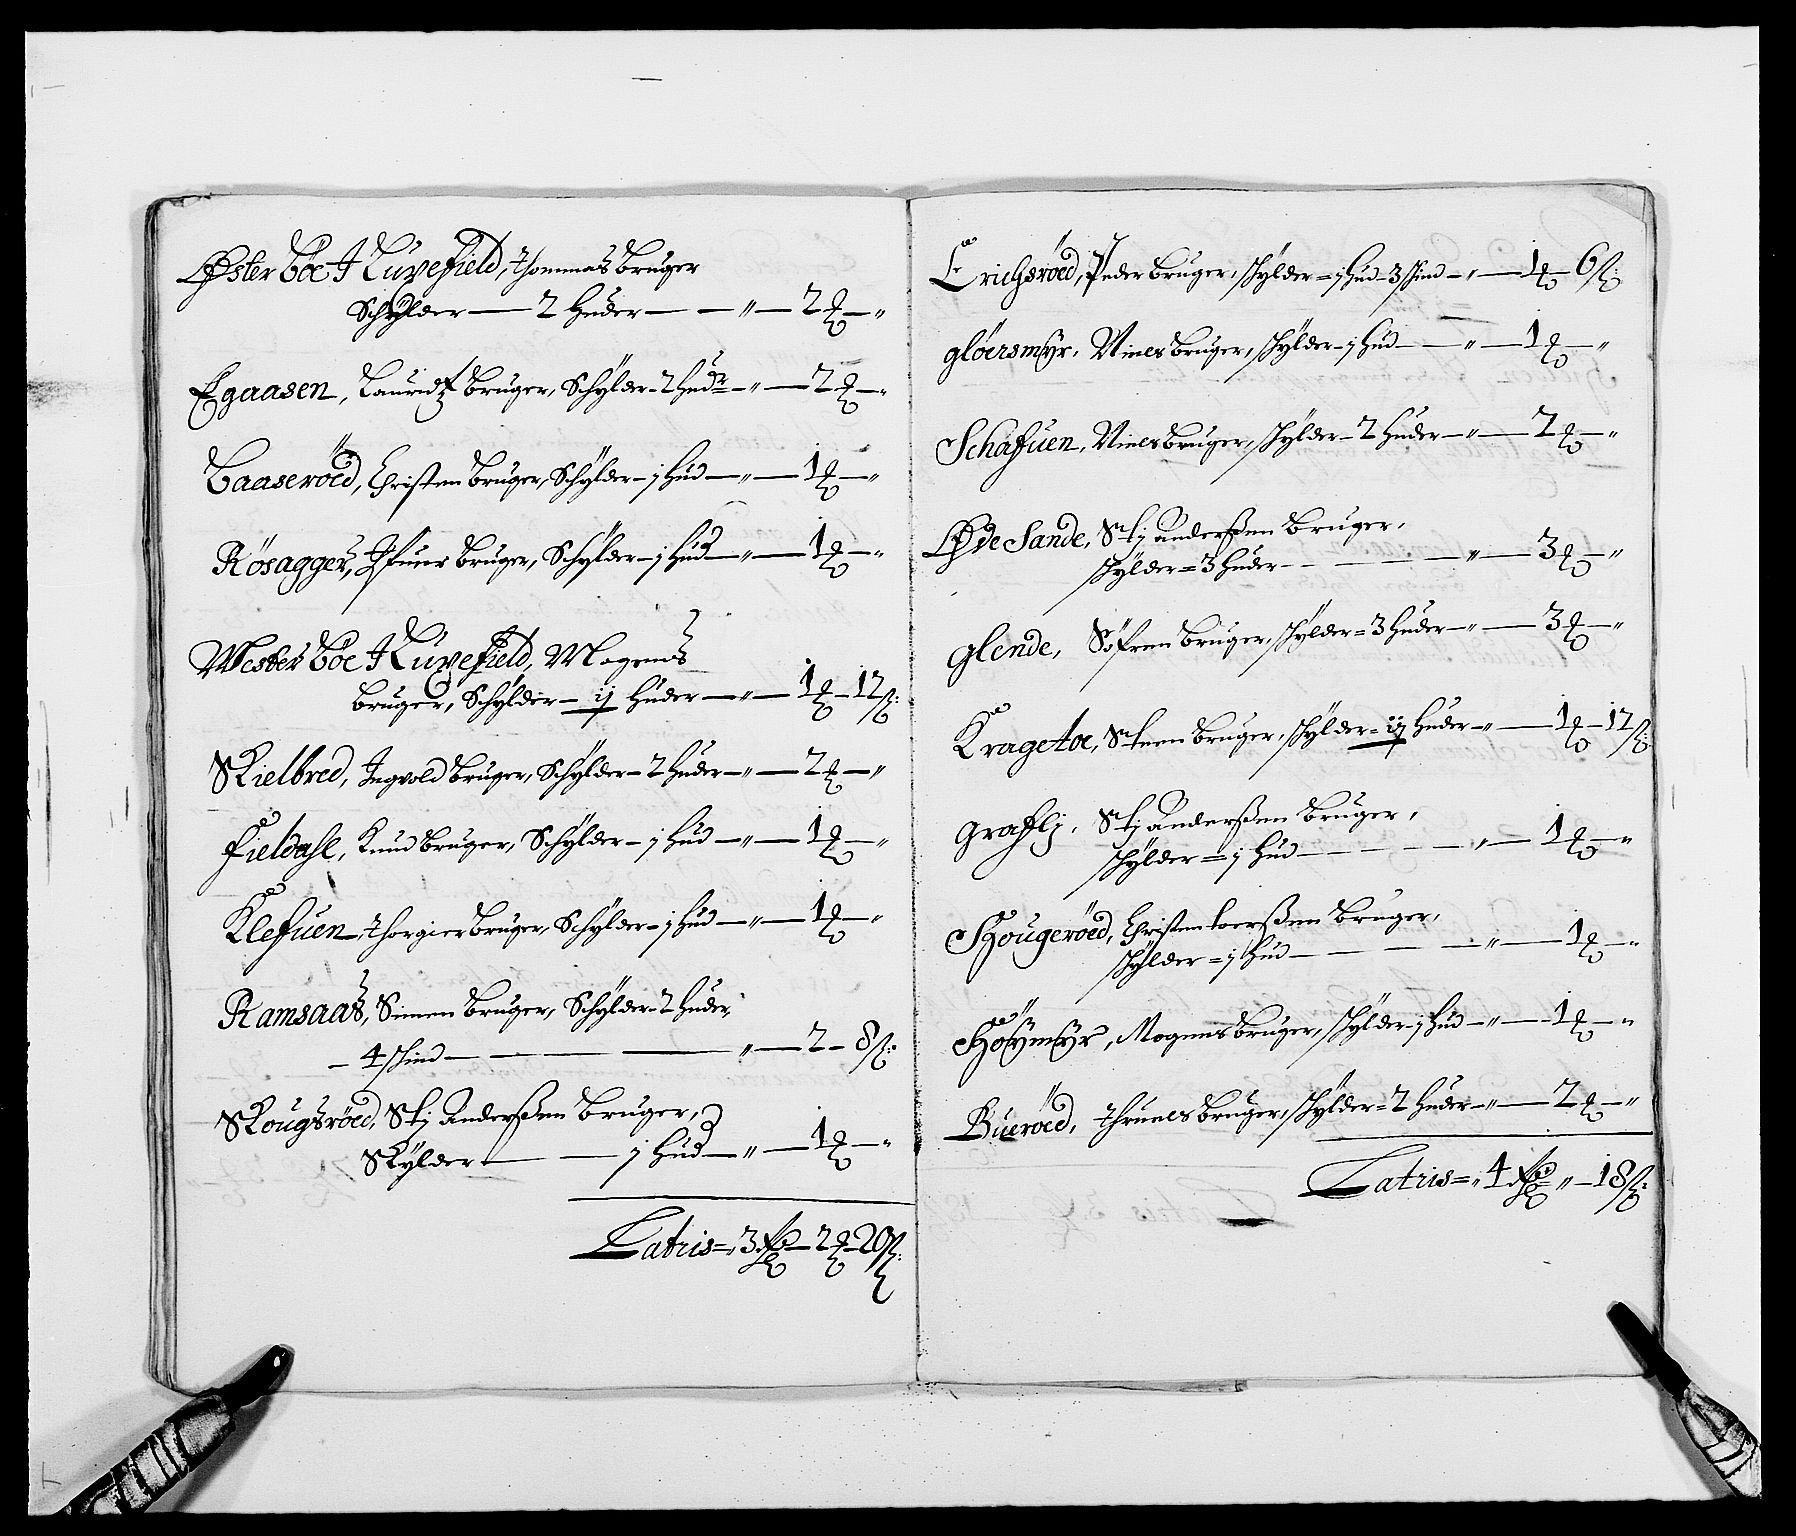 Øster bøe I Kuxefield, Thommas bruger
Schylder — 2 huder — — " — 2 ₰ — "
Egaasen, Lauridtz bruger, Schylder – 2 hudr – " — 2 ₰ — "
Baaserøed, Christen bruger, Schylder – j hud — " — 1 ₰ — "
Rösagger, bruger, Schylder – j hud — " — 1 ₰ — "
Wester bøe I Kuxefield, Mogens
bruger, Schylder – ij huder — " — 1 ₰ – 12 ß:
Skielbred, Ingvold bruger, Schylder – 2 huder – " — 2 ₰ — "
Fieldahl, Knud bruger, Schylder – j hud — " — 1 ₰ — "
Klefuen, Thorgier bruger, Schylder – j hud — " — 1 ₰ — "
Ramsaas, Simen bruger, Schylder – 2 huder,
– 4 skind — — — " — 2 – 8 ß:
Skougsröed, Stj Anderßen bruger,
Skylder — — j hud — " — 1 ₰ — "
Latris = " 3 – 2 ₰ – 20 ß:
Erichsröed, Peder bruger, skylder = j hud – 3 skind – " — 1 ₰ – 6 ß:
Glöersmyr, Niels bruger, skylder – j hud — " — 1 ₰ — "
Schafuen, Niels bruger, skylder – 2 huder – " — 2 ₰ — "
Øde Sande, Stj Anderßen bruger,
skylder = 3 huder – — — " — 3 ₰ — "
Glende, Söfren bruger, skylder = 3 huder – " — 3 ₰ — "
Kragetoe, Steen bruger, skylder = ij huder – " — 1 ₰ – 12 ß:
Graflj, Stj Anderßen bruger,
skylder = j hud — — — " — 1 ₰ — "
Hougeröed, Christen bruger,
skylder = j hud — — — " — 1 ₰ — "
Höymyr, Mogens bruger, skylder – j hud – " — 1 ₰ — "
Bueröed, Truels bruger, skylder = 2 huder – " — 2 ₰ — "
Latris = " 4 " – 18 ß: